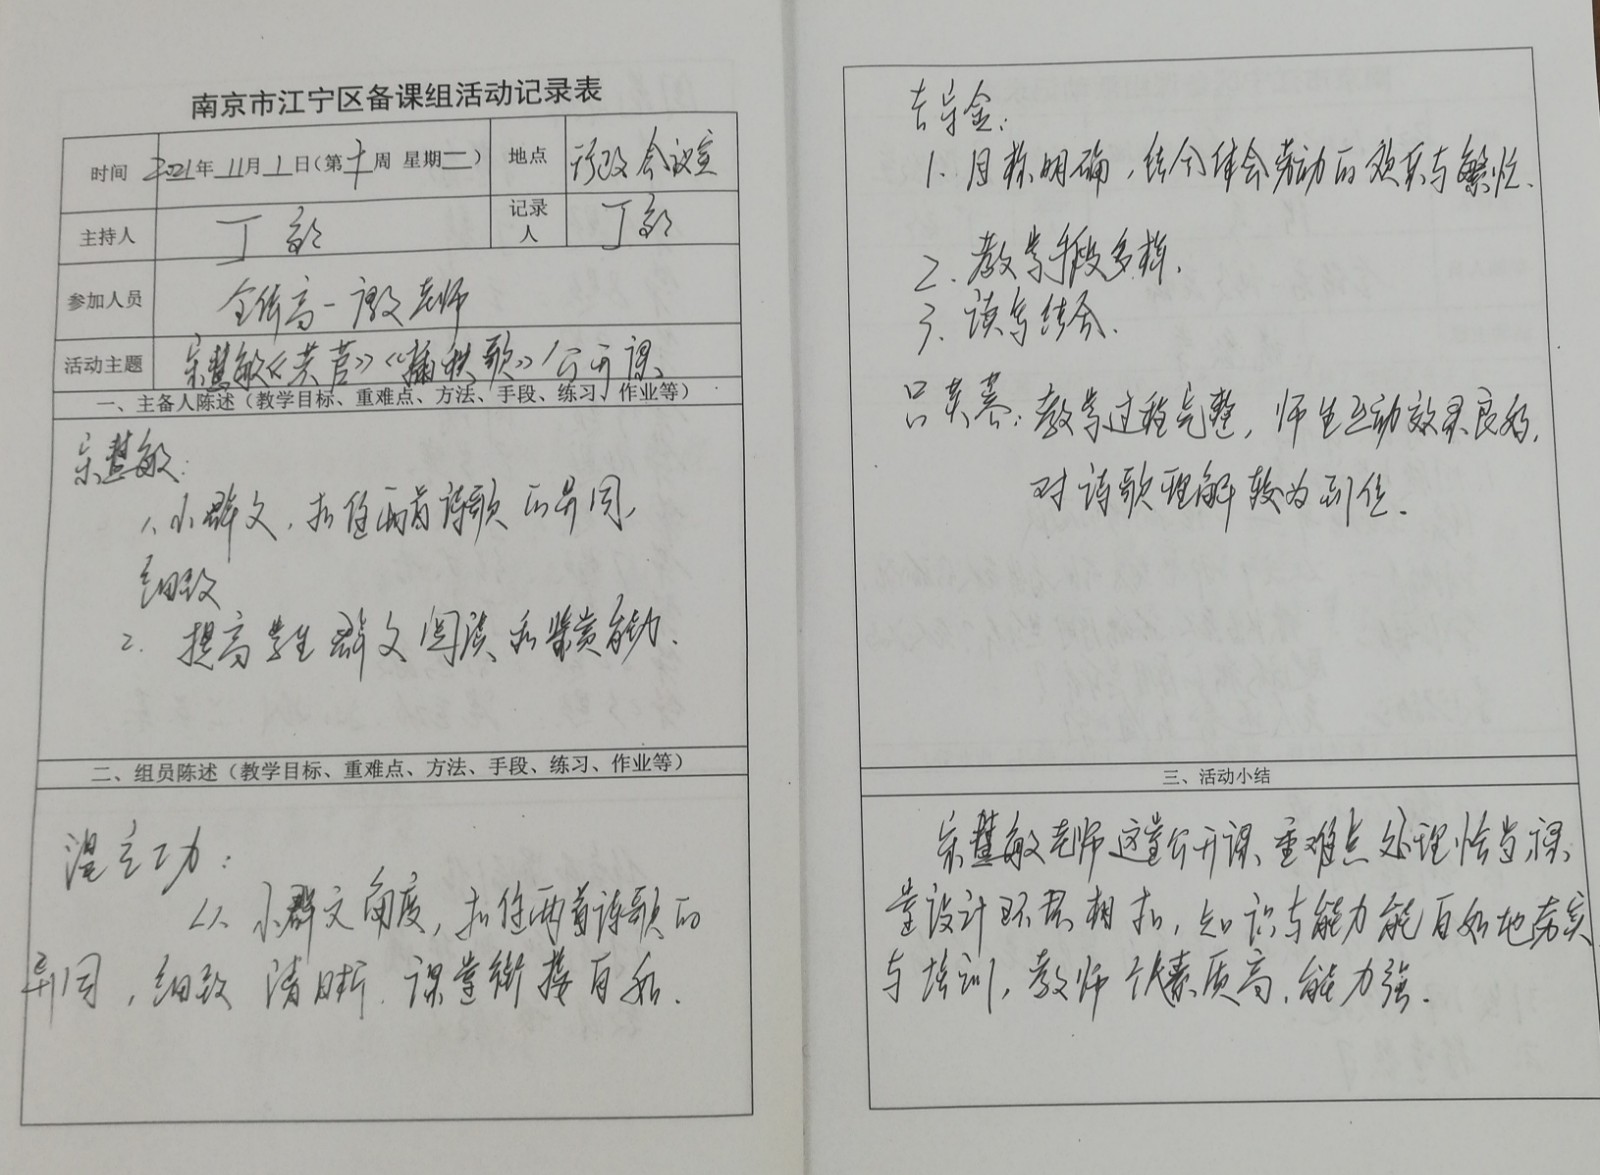 南京市江宁区备课组活动记录表
时间 2021年 11月 1日(第十周 星期一) 地点 行政会议室
主持人 丁 记录人 丁
参加人员 全体高一语文老师
活动主题 宋慧敏《芣苢》《插秧歌》公开课
一、主备人陈述（教学目标、重难点、方法、手段、练习、作业等）
宋慧敏:
1. 小群文，扣住两首诗歌的异同，
细致
2. 提高学生群文阅读和鉴赏能力.
二、组员陈述（教学目标、重难点、方法、手段、练习、作业等）
温立功:
从小群文角度，扣住两首诗歌的
异同，细致清晰. 课堂衔接自然.
金:
1. 目标明确，结合体会劳动的欢乐与繁忙.
2. 教学手段多样.
3. 读写结合.
吕: 教学过程完整，师生互动效果良好，
对诗歌理解较为到位.
三、活动小结
宋慧敏老师这堂公开课重难点处理恰当课
堂设计环环相扣，知识与能力能自如地夯实
与培训，教师个人素质高，能力强.